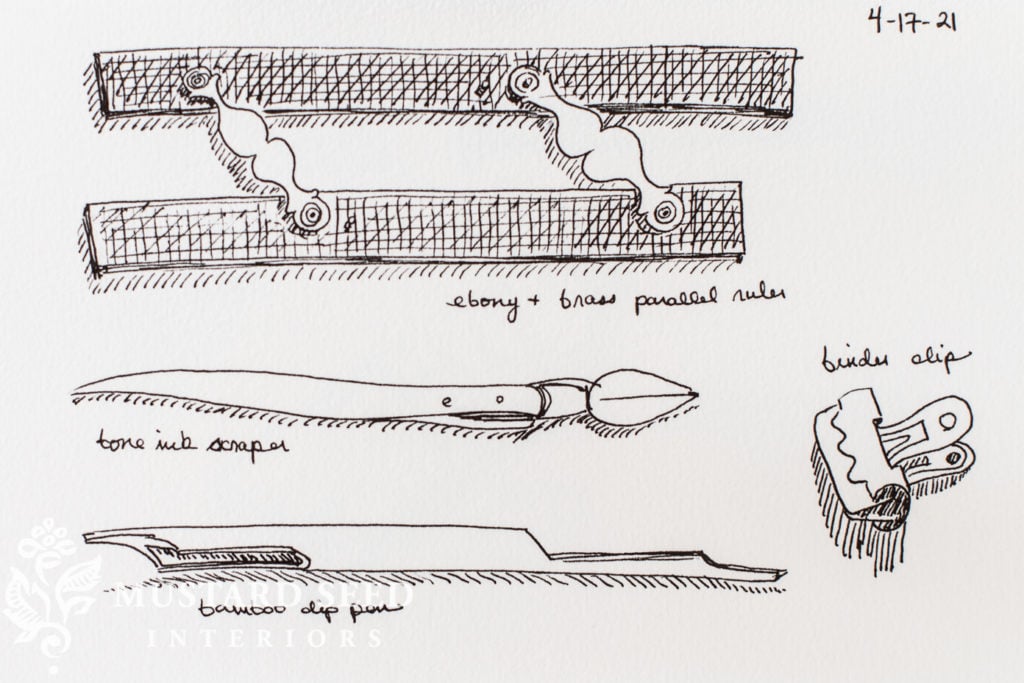 4-17-21
ebony + brass parallel ruler
binder clip
bone ink scraper
bamboo dip pen
MUSTARD SEED
INTERIORS